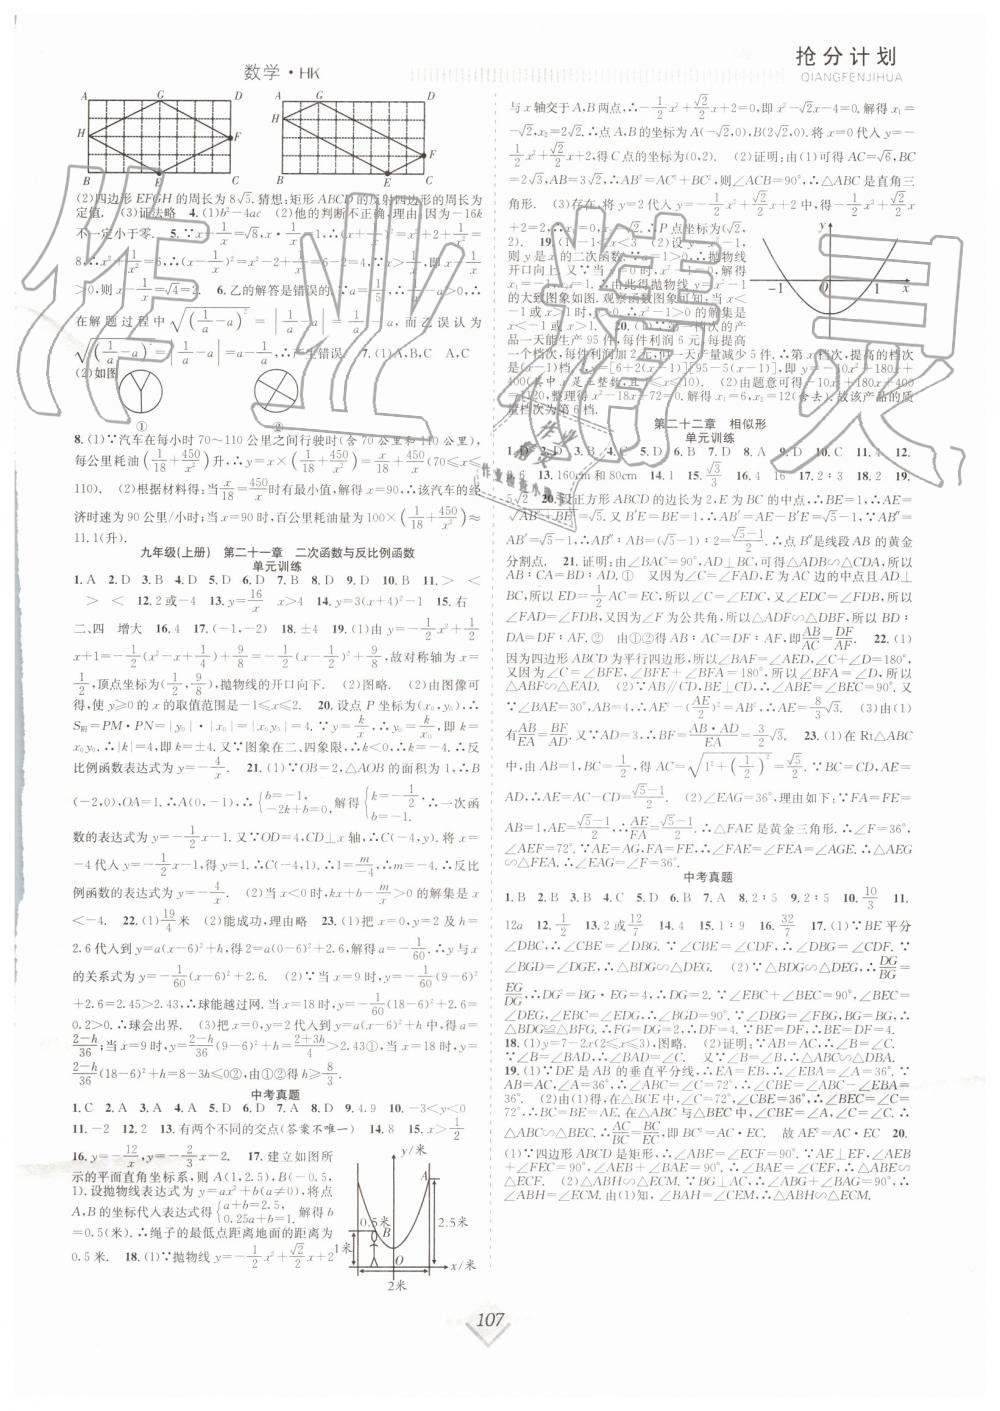 数学·HK
抢分计划
QIANGFENJIHUA
A G D
H F
B E C
A G D
H F
B E C
(2)四边形 EFGH 的周长为 8√5. 猜想:矩形 ABCD 的反射四边形的周长为
定值. (3)证法略 4.(1)b²-4ac (2)他的判断不正确,理由:因为-16k
8,∴x²+1/x²=6,∴(x-1/x)²=x²-2+1/x²=6-2=4,∵x>1/x,即 x-1/x>
0,则 x-1/x=√4=2. 6.乙的解答是错误的.∵a=1/5,∴1/a-a>0,∴
在解题过程中√(1/a-a)²=|1/a-a|=1/a-a,而乙误认为
√(1/a-a)²=|1/a-a|=a-1/a,∴产生错误. 7.(1)A,B,C A,C
(2)如图
① ②
8.(1)∵汽车在每小时 70~110 公里之间行驶时(含 70 公里和 110 公里),
每公里耗油(1/18+450/x²)升,∴y=x·(1/18+450/x²)=x/18+450/x(70≤x≤
110). (2)根据材料得:当x/18=450/x时有最小值,解得 x=90,∴该汽车的经
济时速为 90 公里/小时;当 x=90 时,百公里耗油量为 100×(1/18+450/8100)≈
11.1(升).
九年级(上册) 第二十一章 二次函数与反比例函数
单元训练
1.A 2.D 3.B 4.C 5.D 6.C 7.D 8.D 9.D 10.B 11.> <
> < 12.2或-4 13.y=16/x x>4 14.y=3(x+4)²-1 15.右
二、四 增大 16.4 17.(-1,-2) 18.±4 19.(1)由 y=-1/2x²+1/2
x+1=-1/2(x²-x+1/4)+9/8=-1/2(x-1/2)²+9/8,故对称轴为 x=
1/2,顶点坐标为(1/2,9/8),抛物线的开口向下. (2)图略. (2)由图像可
得,使 y≥0 的 x 的取值范围是-1≤x≤2. 20.设点 P 坐标为(x₀,y₀),∴
S阴=PM·PN=|y₀|·|x₀|=|x₀y₀|=4. ∵y=k/x,∴y₀=k/x₀,即 k=
x₀y₀,∴|k|=4,即 k=±4. 又∵图象在二、四象限,∴k<0,∴k=-4. ∴反
比例函数表达式为 y=-4/x. 21.(1)∵OB=2,△AOB 的面积为 1,∴B
(-2,0),OA=1.∴A(0,-1),∴{b=-1, -2k+b=0, 解得{k=-1/2, b=-1. ∴一次函
数的表达式为 y=-1/2x-1. 又∵OD=4,CD⊥x 轴,∴C(-4,y). 将 x=
-4 代入 y=-1/2x-1,得 y=1.∴C(-4,1),∴1=m/-4,∴m=-4. ∴反比
例函数的表达式为 y=-4/x. (2)当 x<0 时,kx+b-m/x>0 的解集是 x
<-4. 22.(1)19/4米 (2)能成功,理由略 23.(1)把 x=0,y=2 及 h=
2.6 代入到 y=a(x-6)²+h,得 2=a(0-6)²+2.6,解得 a=-1/60.∴y 与 x
的关系式为 y=-1/60(x-6)²+2.6. (2)∵当 x=9 时,y=-1/60(9-6)²
+2.6=2.45>2.43,∴球能越过网. 当 x=18 时,y=-1/60(18-6)²+2.6=
0.2>0.∴球会出界. (3)把 x=0,y=2 代入到 y=(x-6)²+h 中得 a=
2-h/36;当 x=9 时,y=2-h/36(9-6)²+h=2+3h/4>2.43①,当 x=18 时,y=
2-h/36(18-6)²+h=8-3h≤0②,由①②得 h≥8/3.
中考真题
1.C 2.A 3.D 4.A 5.D 6.D 7.A 8.D 9.4.9 10.-3<y<0
11.-2 12.2 13.有两个不同的交点(答案不唯一) 14.8 15.x>1/2
16.y=-12/x,y=-2/3x-2. 17.建立如图所
示的平面直角坐标系,则 A(1,2.5),B(-0.5,
1).设抛物线表达式为 y=ax²+b(a≠0),将点
A,B 的坐标代人表达式得{a+b=2.5, 0.25a+b=1. 解得 b
=0.5(米). ∴绳子的最低点距离地面的距离为
0.5 米. 18.(1)∵抛物线 y=-1/2x²+√2/2x+2
y/米
A
0.5米
B
2.5米
1米
O
x/米
2米
与 x 轴交于 A,B 两点,∴-1/2x²+√2/2x+2=0,即 x²-√2x-4=0. 解得 x₁=
-√2,x₂=2√2.∴点 A,B 的坐标为 A(-√2,0),B(2√2,0). 将 x=0 代入 y=
-1/2x²+√2/2x+2,得 C 点的坐标为(0,2). (2)证明:由(1)可得 AC=√6,BC
=2√3,AB=3√2,∴AB²=AC²+BC²,则∠ACB=90°,∴△ABC 是直角三
角形. (3)存在,将 y=2 代入 y=-1/2x²+√2/2x+2 中,得-1/2x²+√2/2x
+2=2,∴x₁=0(舍去),x₂=√2.∴P 点坐标为(√2,
2). 19.(1)-1<x<3 (2)设 y=x²-1,
则 y 是 x 的二次函数.∵a=1>0,∴抛物线
开口向上. 又∵当 y=0 时,x²-1=0,解得
x₁=1,x₂=-1.∴由此得抛物线 y=x²-1
的大致图象如图. 观察函数图象可知,当 x<
-1 或 x>1 时,y>0.∴x²-1>0 的解集是
x<-1 或 x>1. 20.(1)∵第一档次的产
品一天能生产 95 件,每件利润 6 元,每提高
一个档次,每件利润加 2 元,但一天产量减少 5 件.∴第 x 档次,提高的档次
y
-1 O 1 x
第二十二章 相似形
单元训练
0.6 13.160cm 和 80cm 14.1 15.√3/3 16.4 17.2∶3 18.2 19.
分割点. 21.证明:由∠CAB=90°,AD⊥BC,可得△ADB∽△CDA,所以
AB∶AC=BD∶AD.① 又因为∠C=∠FAD,E 为 AC 边的中点且 AD⊥
BC,所以 ED=1/2AC=EC,所以∠C=∠EDC,又∠EDC=∠FDB,所以
∠FAD=∠FDB,又因为∠F 为公共角,所以△ADF∽△DBF,所以 BD∶
DA=DF∶AF.② 由①②得 AB∶AC=DF∶AF,即AB/AC=DF/AF. 22.(1)
因为四边形 ABCD 为平行四边形,所以∠BAF=∠AED,∠C+∠D=180°,
又因为∠C=∠BFE,∠BFE+∠BFA=180°,所以∠BFA=∠D,所以
△ABF∽△EAD. (2)∵AB∥CD,BE⊥CD,∴∠ABE=∠BEC=90°. 又
∵∠BAE=30°,AB=4,∴AE²-(AE/2)²=AB²,∴AE=8/3√3. (3)由(1)
有AB/EA=BF/AD. 又∵AD=3,∴BF=AB·AD/EA=3/2√3. 23.(1)在 Rt△ABC
中,由 AB=1,BC=1/2,得 AC=√1²+(1/2)²=√5/2. ∵BC=CD,AE=
AD,∴AE=AC-CD=√5-1/2. (2)∠EAG=36°,理由如下:∵FA=FE=
AB=1,AE=√5-1/2,∴AE/FA=√5-1/2.∴△FAE 是黄金三角形.∴∠F=36°,
∠AEF=72°. ∵AE=AG,FA=FE,∴∠FAE=∠FEA=∠AGE. ∴△AEG
∽△FEA. ∴∠EAG=∠F=36°.
中考真题
1.B 2.B 3.B 4.C 5.D 6.B 7.A 8.2∶5 9.2∶5 10.10/3 11.
12a 12.1/2 13.2或12/7 14.4 15.1∶9 16.32/7 17.(1)∵BE 平分
∠DBC,∴∠CBE=∠DBG. ∵∠CBE=∠CDF,∴∠DBG=∠CDF. ∵
∠BGD=∠DGE,∴△BDG∽△DEG. (2)∵△BDG∽△DEG,∴DG/BG=
EG/DG,∴DG²=BG·EG=4,∴DG=2. ∵∠EBC+∠BEC=90°,∠BEC=
∠DEG,∠EBC=∠EDG,∴∠BGD=90°. ∵∠DBG=∠FBG,BG=BG,∴
△BDG≌△BFG,∴FG=DG=2,∴DF=4. ∵BE=DF,∴BE=DF=4.
18.(1)y=7-2x(2≤x≤3),图略. (2)证明:∵AB=AC,∴∠B=∠C.
∵∠B=∠BAD,∴∠BAD=∠C. 又∵∠B=∠B,∴△ABC∽△DBA.
19.(1)∵DE 是 AB 的垂直平分线,∴EA=EB,∴∠EBA=∠A=36°. ∵
AB=AC,∠A=36°,∴∠ABC=∠C=72°,∴∠CBE=∠ABC-∠EBA=
36°. (2)由(1)得,在△BCE 中,∠C=72°,∠CBE=36°,∴∠BEC=∠C=
72°,∴BC=BE=AE. 在△ABC 与△BEC 中,∠CBE=∠A,∠C=∠C. ∴
△ABC∽△BEC. ∴AC/BC=BC/EC,即 BC²=AC·EC. 故 AE²=AC·EC. 20.
(1)∵四边形 ABCD 是矩形,∴∠ABE=∠ECF=90°. ∵AE⊥EF,∠AEB
+∠FEC=90°,∠AEB+∠BAE=90°,∴∠BAE=∠FEC,∴△ABE∽
△ECF. (2)△ABH∽△ECM. ∵BG⊥AC,∴∠ABG+∠BAG=90°,∴
∠ABH=∠ECM. 由(1)知,∠BAH=∠CEM,∴△ABH∽△ECM.
107
作业精灵